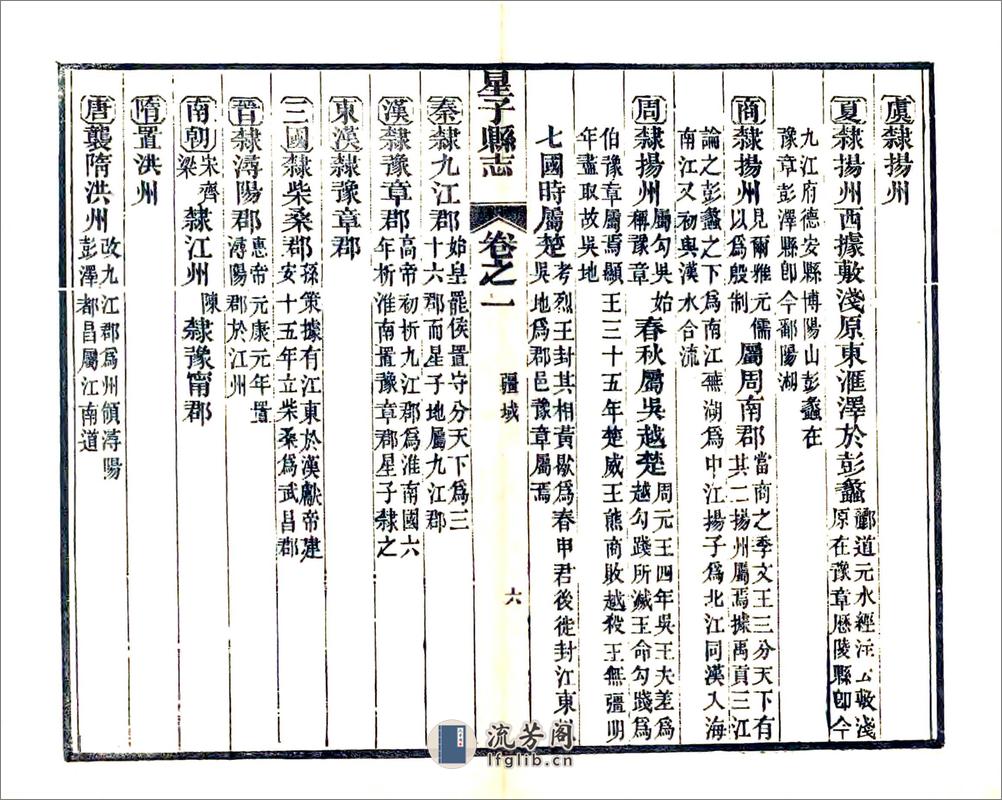 虞隸揚州
夏隸揚州西據敷淺原東滙澤於彭蠡酈道元水經注敷淺原在豫章歷陵縣即今
九江府德安縣博陽山彭蠡在豫章彭澤縣即今鄱陽湖
商隸揚州見爾雅元儒以爲殷制屬周南郡當商之季文王三分天下有其二揚州屬焉據禹貢三江
論之彭蠡之下爲南江蕪湖爲中江揚子爲北江同漢入海南江又初與漢水合流
周隸揚州屬勾吳始稱豫章春秋屬吳越楚周元王四年吳王夫差爲越勾踐所滅王命勾踐爲
伯豫章屬焉顯王三十五年楚威王熊商敗越殺王無彊明年盡取故吳地
七國時屬楚考烈王封其相黃歇爲春申君後徙封江東吳地爲郡邑豫章屬焉
星子縣志 卷之一 疆域 六
秦隸九江郡始皇罷侯置守分天下爲三十六郡而星子地屬九江郡
漢隸豫章郡高帝初析九江郡爲淮南國六年析淮南置豫章郡星子隸之
東漢隸豫章郡
三國隸柴桑郡孫策據有江東於漢獻帝建安十五年立柴桑爲武昌郡
晉隸潯陽郡惠帝元康元年置潯陽郡於江州
南朝宋齊梁隸江州陳隸豫甯郡
隋置洪州
唐襲隋洪州改九江郡爲州領潯陽彭澤都昌屬江南道
流芳阁
lfglib.cn